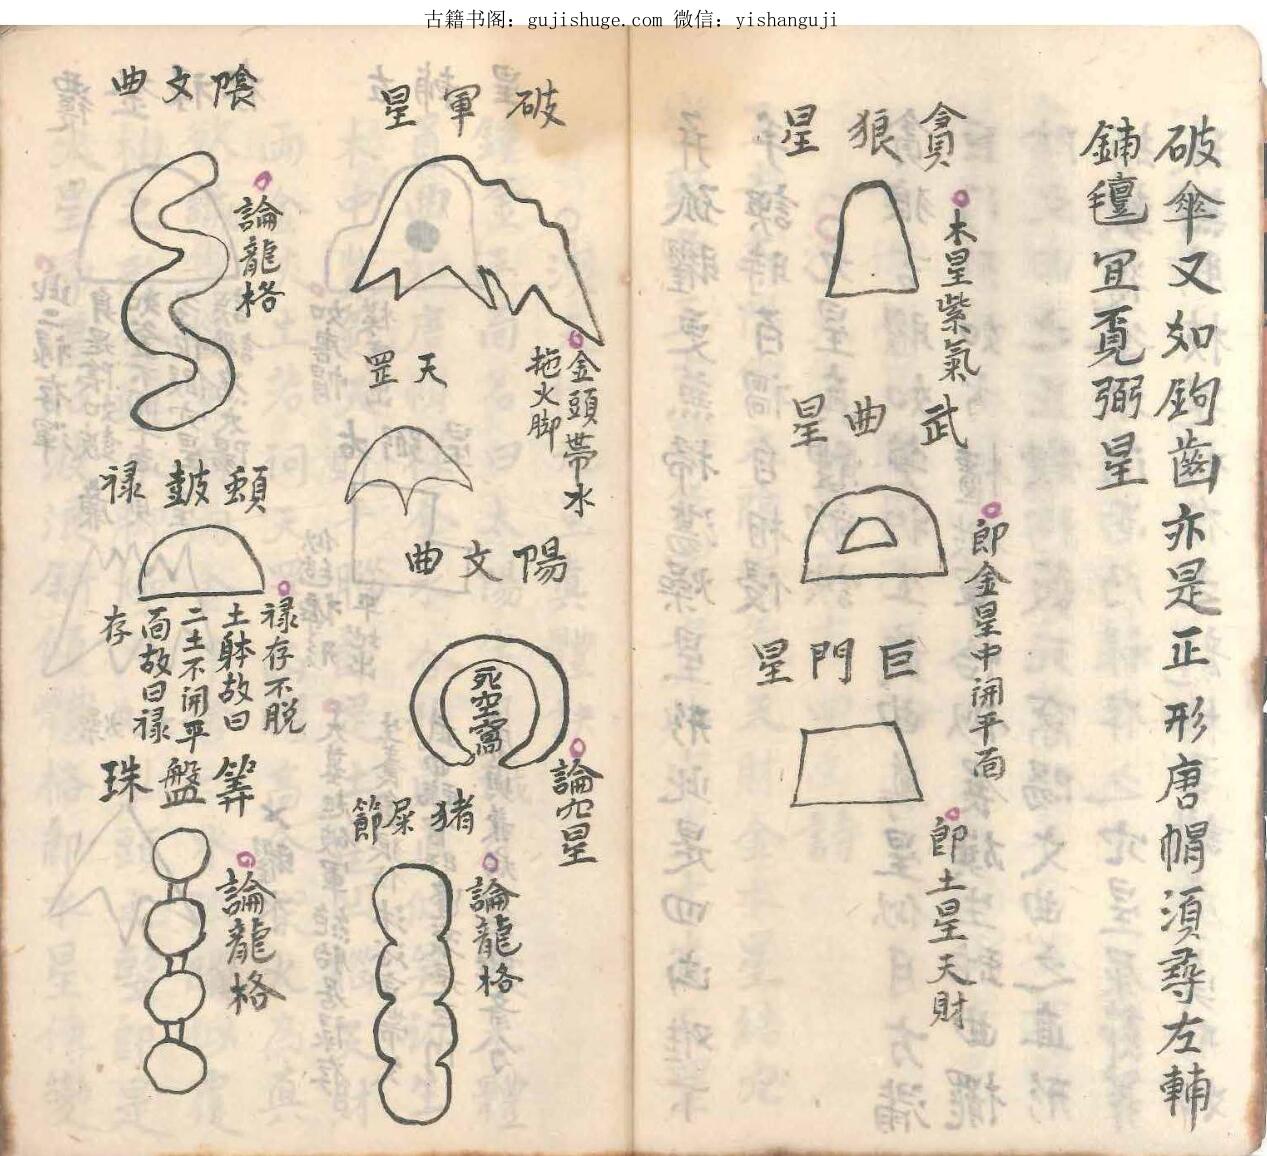 古籍书阁：gujishuge.com 微信：yishanguji
破傘又如鉤齒亦是正形唐帽須尋左輔
鋪氊宜覓弼星
貪狼星
木星紫氣
武曲星
郎金星中開平面
巨門星
郎土星天財
破軍星
金頭帶水
拖火脚
天罡
陽文曲
死空窩
論穴星
猪屎節
論龍格
隂文曲
論龍格
頰皷禄
禄存不脱
土躰故曰
二土不開平
面故曰禄
存
筭盤珠
論龍格